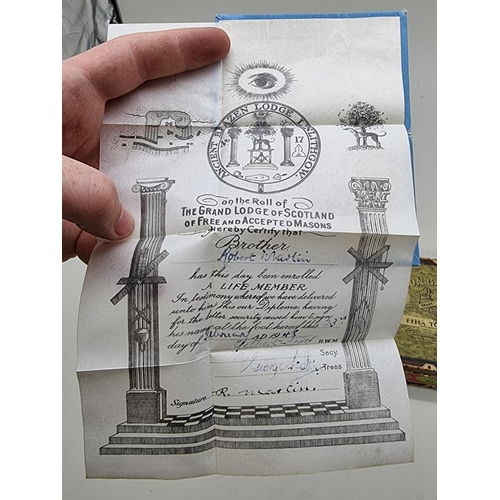 ANCIENT BRAZEN LODGE LINLITHGOW.
17
on the Roll of
THE GRAND LODGE OF SCOTLAND
OF FREE AND ACCEPTED MASONS
Hereby Certify that
Brother
Robert
has this day been enrolled
A LIFE MEMBER
In testimony whereof we have delivered
unto him this our Diploma having
for the better security caused him to sign
his name at the foot hereof this
day of AD 19
R.W.M.
Secy
Treas
Signature R. Martin